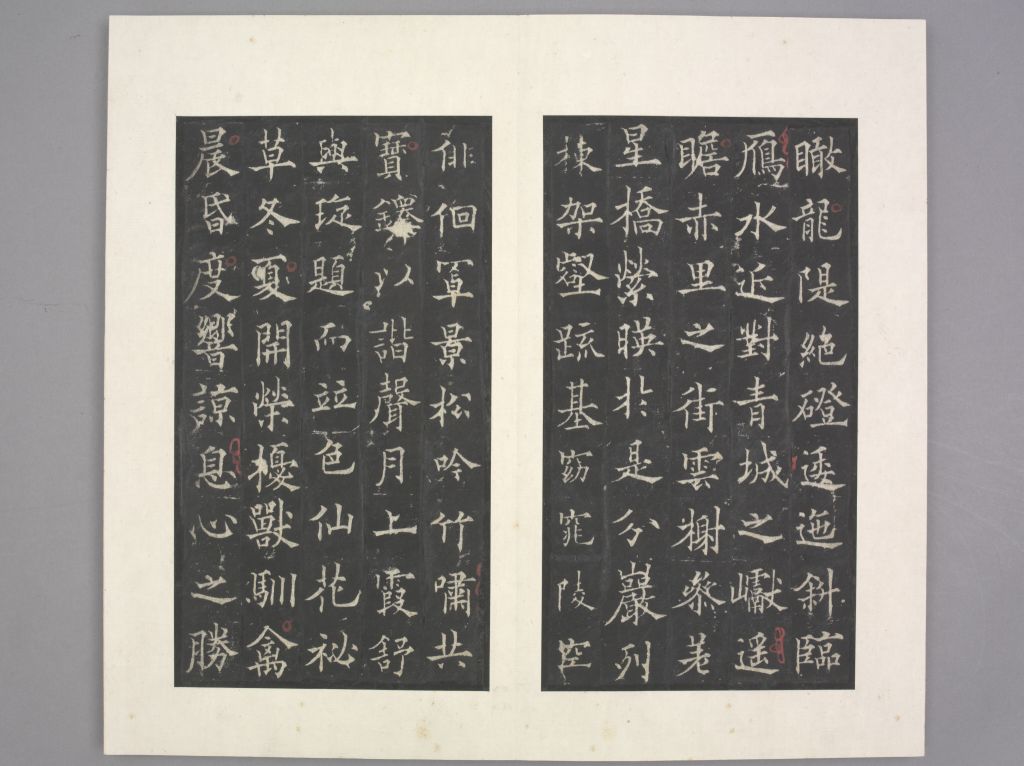 瞰龍隄絶磴逶迤斜臨
鴈水近對青城之巘遥
瞻赤里之街雲榭參差
星橋縈暎扵是分巖列
棟架壑疏基窈窕陵空
俳佪罩景松吟竹嘯共
寶鐸以諧聲月上霞舒
與琁題而竝色仙花祕
草冬夏開榮擾獸馴禽
晨昬度響諒息心之勝